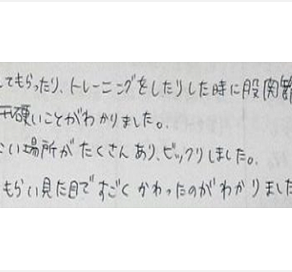 してもらったり、トレーニングをしたりした時に股関節
硬いことがわかりました。
い場所がたくさんあり、ビックリしました。
もらい見た目ですごくかわったのがわかりました